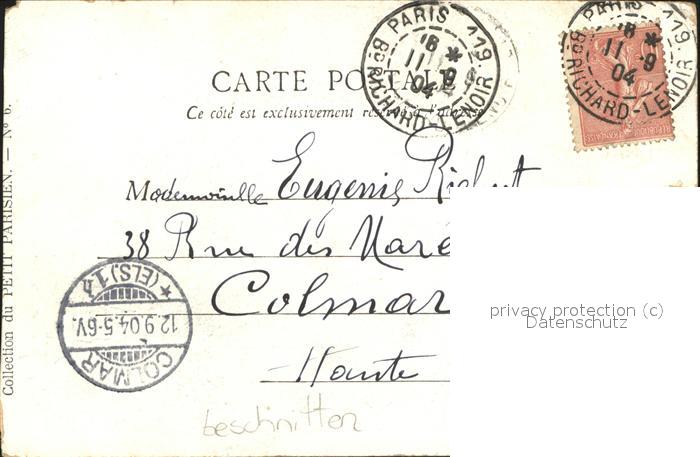 PARIS 119
Bd RICHARD-LENOIR
8
11 9
04
PARIS 119
Bd RICHARD-LENOIR
8
11 9
04
CARTE POSTALE
Ce côté est exclusivement réservé à l'adresse
RÉPUBLIQUE FRANÇAISE
Mademoiselle Eugenie
38 Rue des
Colmar
Haute
privacy protection (c)
Datenschutz
COLMAR
12.9.04.5-6V.
* (ELS.) 1
beschnitten
Collection du PETIT PARISIEN. — No 6.